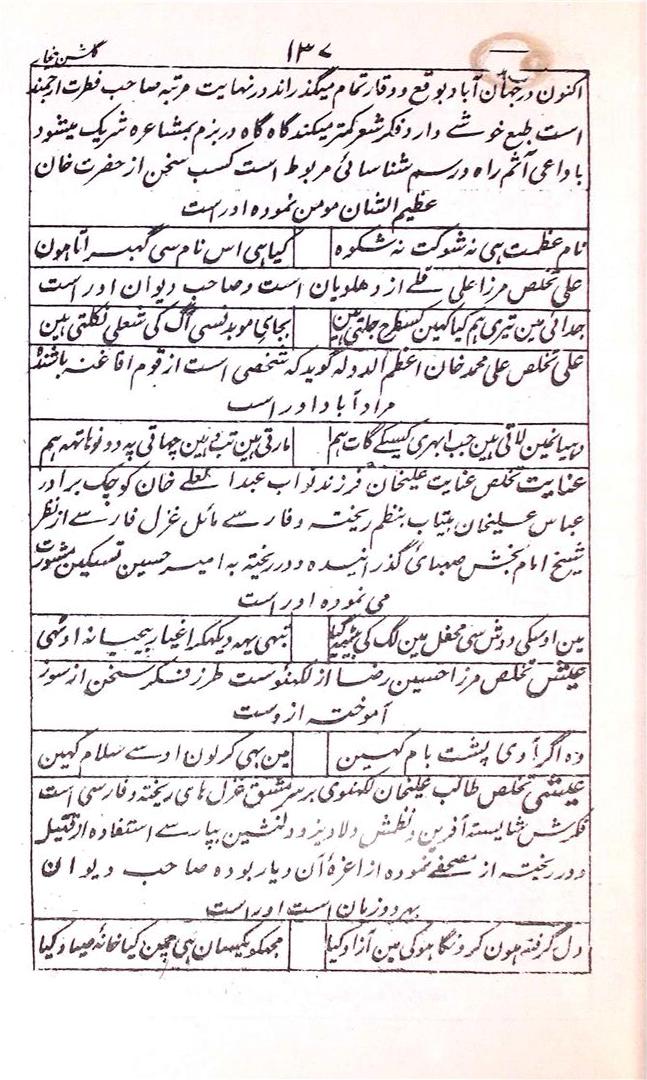 گلشن بیخار ۱۳۷
اکنون در جهان آباد بوقع و وقار تمام میگذراند در نهایت مرتبه صاحب فطرت ارجمند
است طبع خوشے دارد فکر شعر کمتر میکند گاه گاه در بزم بمشاعره شریک میشود
با داعی آثم راه و رسم شناسائی مربوط است کسب سخن از حضرت خان
عظیم الشان مومن نموده او راست
نام عظمت ہی نہ شوکت نہ شکوہ کیا ہی اس نام سی گہبراتا ہون
علی تخلص مرزا علی قلے از دهلویان است و صاحب دیوان او راست
جدائی مین تیری ہم کیا کہین کسطرح جلتی ہین بجای مو بدنسی آگ کی شعلی نکلتی ہین
علی تخلص علی محمد خان اعظم الدوله گوید که شخصی است از قوم افاغنه باشنده
مراد آباد او راست
دہیانمین لاتی ہین جب ابہری کسیکے گات ہم مارتی ہین تب وہین چہاتی پہ دونو ہاتہہ ہم
عنایت تخلص عنایت علیخان فرزند نواب عبد العلے خان کوچک برادر
عباس علیخان بیتاب بنظم ریخته و فارسے مائل غزل فارسے از نظر
شیخ امام بخش صهبائی گذرانیده و در ریخته به امیر حسین تسکین مشورت
می نموده او راست
مین اوسکی دوش سی محفل مین لگ کی بیٹہہ گیا تبہی یہہ دیکہکر اغیار پیچسا نہ اوٹہی
عیش تخلص مرزا حسین رضا از لکهنوست طرز فکر سخن از سوز
آموخته از وست
وہ اگر آوی پشت بام کہین مین بہی کر لون اوسے سلام کہین
عیشی تخلص طالب علیخان لکهنوی بر سر مشق غزل های ریخته و فارسی است
فکرش شایسته آفرین و نظمش دلاویز و دلنشین بپارسے استفاده از قتیل
و در ریخته از مصحفے نموده از اعزۀ آن دیار بوده صاحب دیوان
بهر دو زبان است او راست
دل گرفتہ ہون کرونگا ہوکی مین آزاد کیا مجہکو یکسان ہی چمن کیا خانۂ صیاد کیا